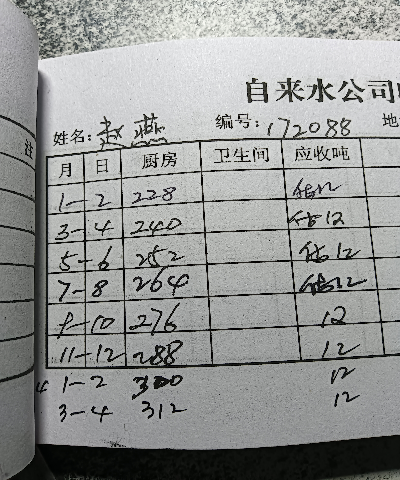 自来水公司
姓名: 赵燕 编号: 172088 地
月 日 厨房 卫生间 应收吨
1-2 228 估12
3-4 240 估12
5-6 252 估12
7-8 264 估12
9-10 276 12
11-12 288 12
1-2 300 12
3-4 312 12